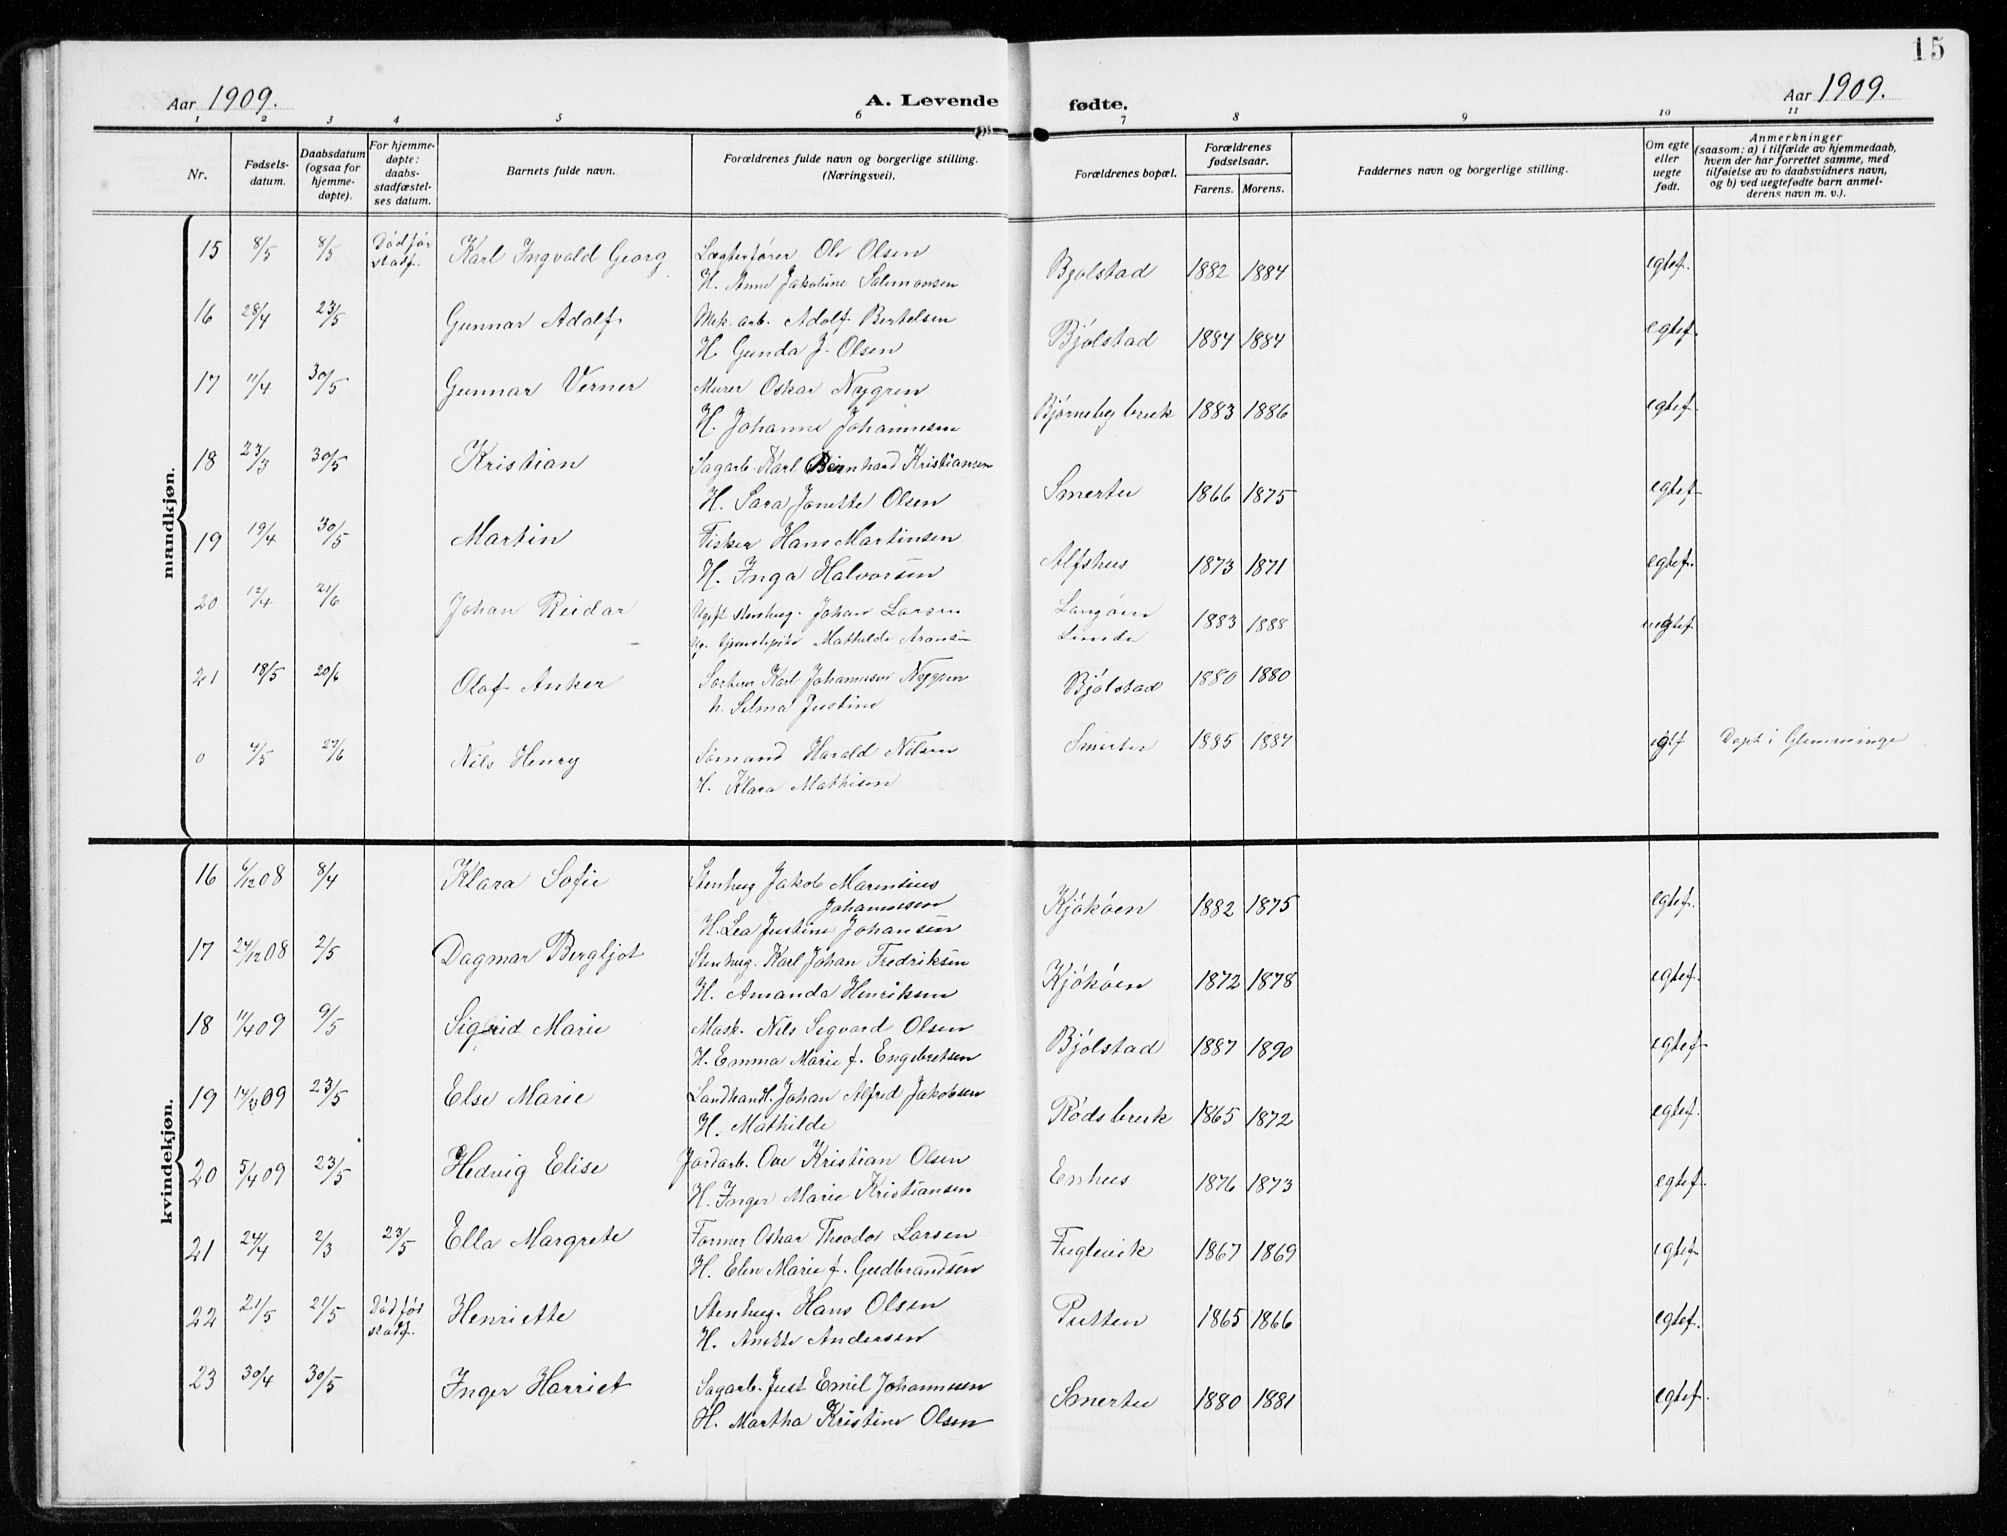 15
Aar 1909.
A. Levende fødte.
Aar 1909.
1 2 3 4 5 6 7 8 9 10 11
Nr.
Fødsels-
datum.
Daabsdatum
(ogsaa for
hjemme-
døpte).
For hjemme-
døpte:
daabs-
stadfæstel-
ses datum.
Barnets fulde navn.
Forældrenes fulde navn og borgerlige stilling.
(Næringsvei).
Forældrenes bopæl.
Forældrenes
fødselsaar.
Farens. Morens.
Faddernes navn og borgerlige stilling.
Om egte
eller
uegte
født.
Anmerkninger
(saasom: a) i tilfælde av hjemmedaab,
hvem der har forrettet samme, med
tilføielse av to daabsvidners navn,
og b) ved uegtefødte barn anmel-
derens navn m. v.).
mandkjøn.
15 8/5 8/5 Død før Karl Ingvald Georg Lægterfører Ole Olsen Bjølstad 1882 1884 egtef.
stadf. H. Anne Jakobine Salomonsen
16 28/4 23/5 Gunnar Adolf Mek. arb. Adolf Bertelsen Bjølstad 1884 1884 egtef.
H. Gunda J. Olsen
17 11/4 30/5 Gunnar Verner Murer Oskar Nygren Bjørneby bruk 1883 1886 egtef.
H. Johanne Johannesen
18 23/3 30/5 Kristian Sagarb. Karl Bernhard Kristiansen Smertu 1866 1875 egtef.
H. Sara Jonette Olsen
19 19/4 30/5 Martin Fisker Hans Martinsen Alfshus 1873 1871 egtef.
H. Inga Halvorsen
20 12/4 21/6 Johan Reidar Ugift Stenhug. Johan Larsen Langøen 1883 1888 uegtef.
Ug. tjenestepike Mathilde Aronsen Lunde
21 18/5 20/6 Olaf Anker Karl Johannesen Nygren Bjølstad 1880 1880
h. Selma Justine
0 4/5 27/6 Nils Henry Sømand Harald Nilsen Smertu 1885 1887 egtf Døpt i Glemminge
H. Klara Mathisen
kvindekjøn.
16 6/12 08 8/4 Klara Sofie Stenhug Jakob Marensius Kjøkøen 1882 1875 egtef.
Johannesen
H. Lea Justine Johansen
17 27/12 08 2/5 Dagmar Bergljot Stenhug. Karl Johan Fredriksen Kjøkøen 1872 1878 egtef.
H. Amanda Henriksen
18 11/4 09 9/5 Sigrid Marie Mask. Nils Segvard Olsen Bjølstad 1887 1890 egtef.
H. Emma Marie f. Engebretsen
19 14/3 09 23/5 Else Marie Landhandl. Johan Alfred Jakobsen Rødsbruk 1865 1872 egtef.
H. Mathilde
20 5/4 09 23/5 Hedvig Elise Jordarb. Ove Kristian Olsen Enhus 1876 1873 egtef.
H. Inger Marie Kristiansen
21 24/4 2/3 23/5 Ella Margrete Former Oskar Theodor Larsen Fuglevik 1867 1869 egtef.
H. Elen Marie f. Gudbrandsen
22 21/5 21/5 Død før Henriette Stenhug. Hans Olsen Putten 1865 1866 egtef.
stadf. H. Anette Andersen
23 30/4 30/5 Inger Harriet Sagarb. Just Emil Johannesen Smertu 1880 1881 egtef.
H. Martha Kristine Olsen